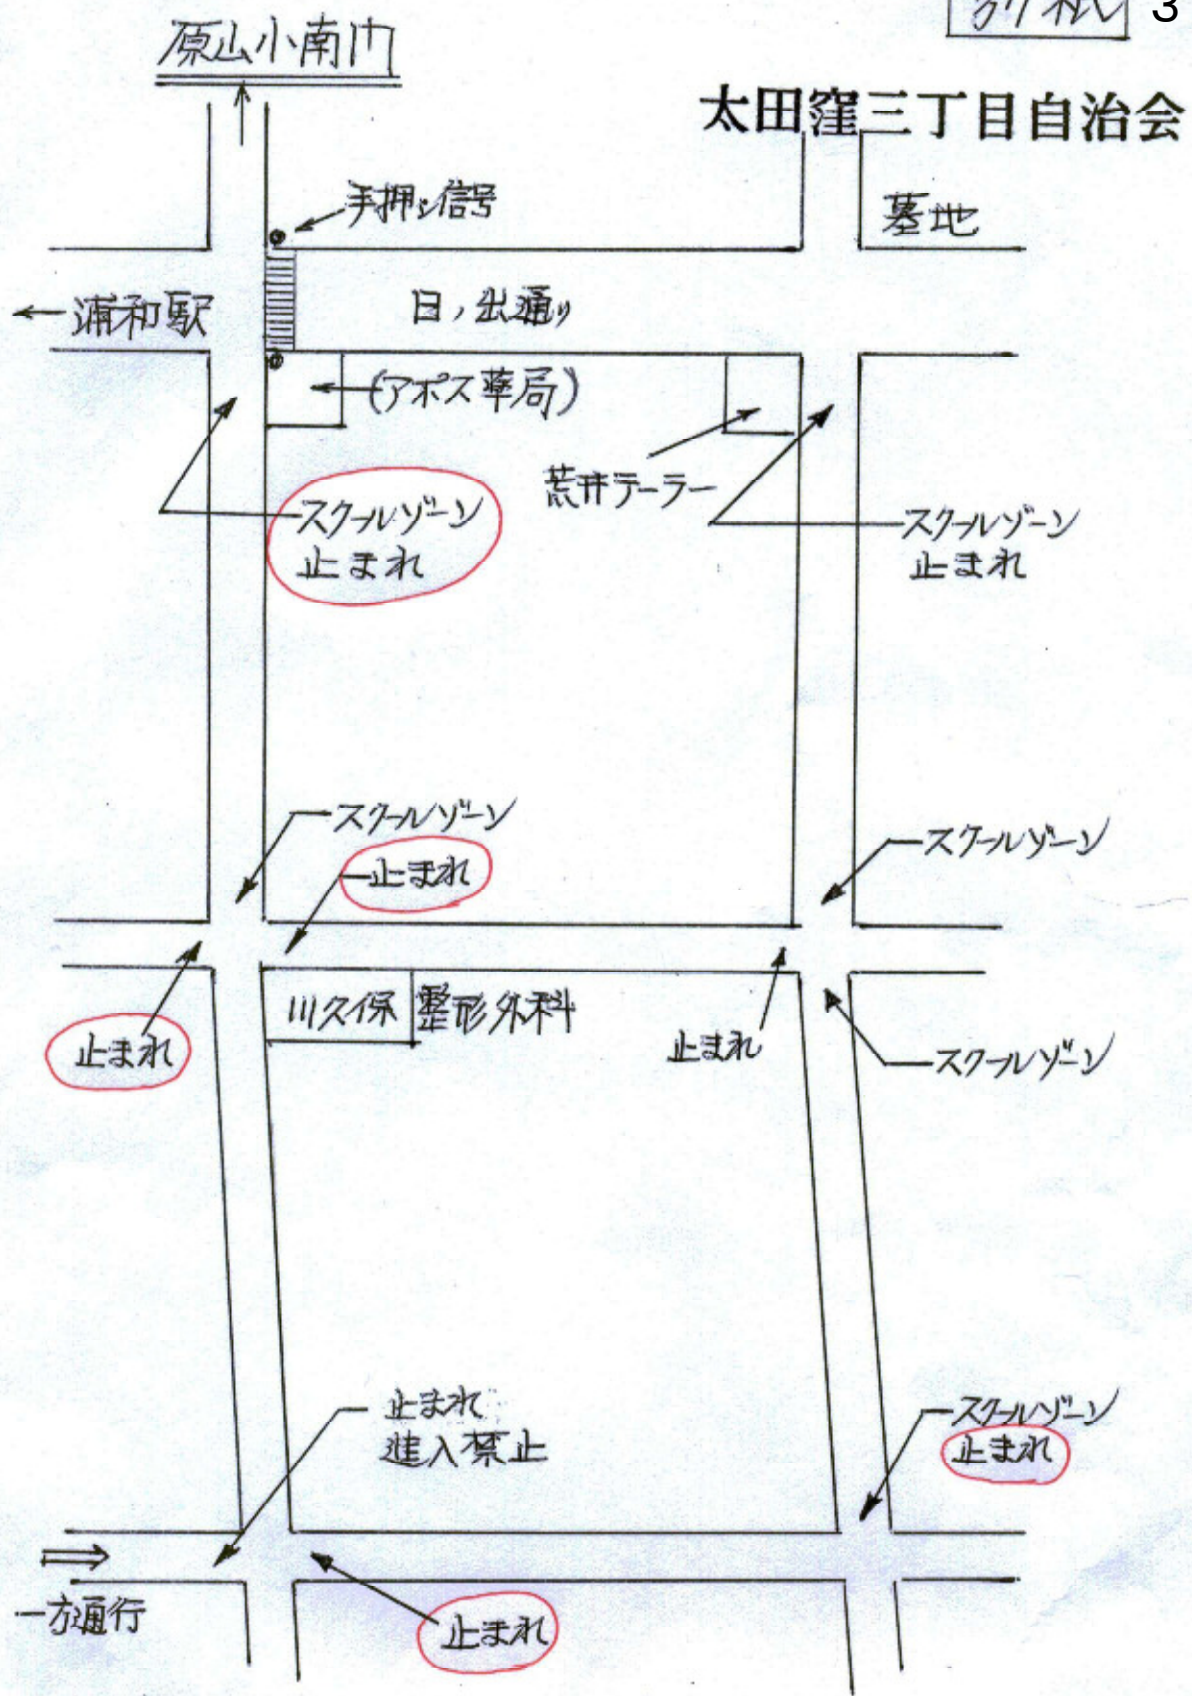 別紙 3
原山小南門
太田窪三丁目自治会
手押し信号
墓地
浦和駅
日ノ出通り
(アポス薬局)
荒井テーラー
スクールゾーン
止まれ
スクールゾーン
止まれ
スクールゾーン
止まれ
スクールゾーン
川久保整形外科
止まれ
止まれ
スクールゾーン
止まれ
進入禁止
スクールゾーン
止まれ
一方通行
止まれ